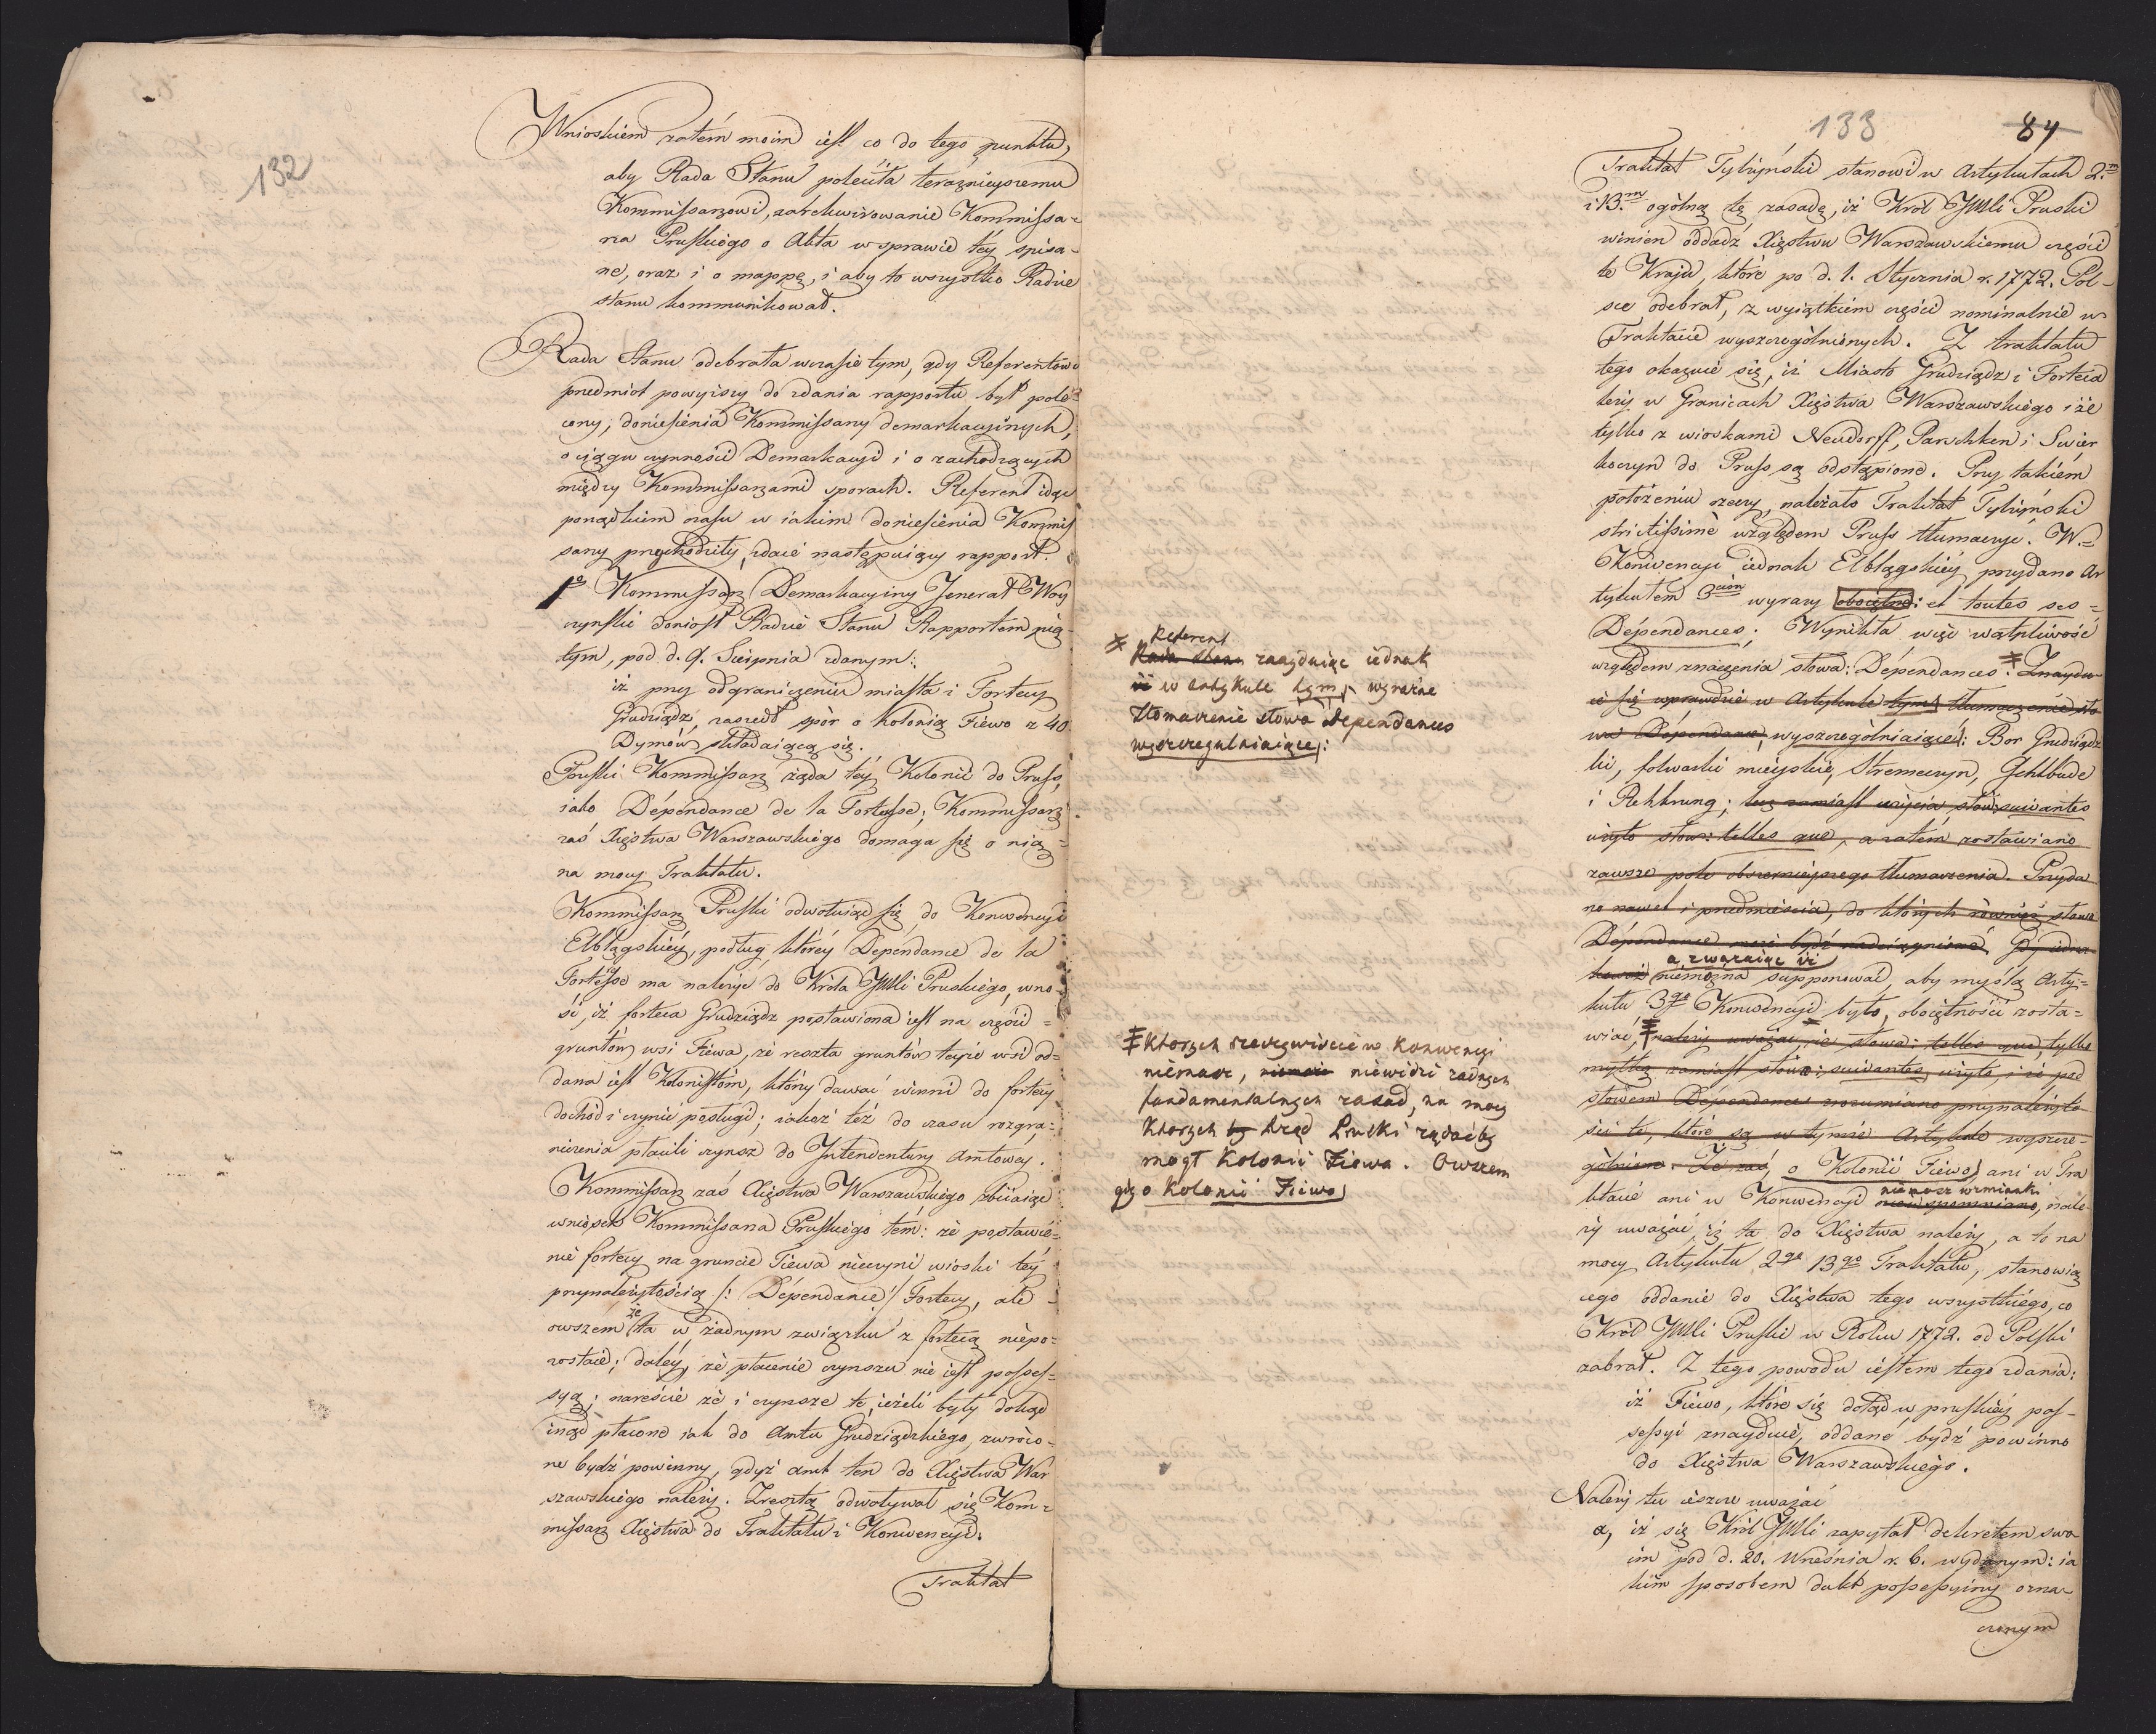 132
Wnioskiem zatém moim iest co do tego punktu,
aby Rada Stanu poleciła teraznieyszemu
Kommissarzowi, zarekwirowanie Kommissa=
rza Pruskiego o Akta w sprawie téy spisa=
ne, oraz i o mappę, i aby to wszystko Radzie
stanu kommunikował.
Rada Stanu odebrała wczasie tym, gdy Referentowi
przedmiot powyższy do zdania rapportu był pole=
cony, doniesienia Kommissarzy demarkacyinych,
o ciągu czynności Demarkacyi i o zachodzących
między Kommissarzami sporach. Referent idąc
porządkiem czasu w iakim doniesienia Kommis
sarzy przychodziły, zdaie następuiący rapport.
1e Kommissarz Demarkacyiny Jenerał Woy
czyński doniosł Radzie Stanu Rapportem pią
tym, pod d. 9. Sierpnia zdanym:
iż przy odgraniczeniu miasta i Fortecy
Grudziądz, zaszedł spór o Kolonią Fiewo z 40
Dymów składaiącą się.
Pruski Kommissarz żąda téy Kolonii do Pruss,
iako Dépendance de la Forteresse, Kommissarz
zaś Xięstwa Warszawskiego domaga się o nią=
na mocy Traktatu.
Kommissarz Pruski odwołuiąc się do Konwencyi
Elblągskiéy, podług któréy Dépendance de la
Forteresse ma należyć do Króla JMci Pruskiego, wno=
si, iż forteca Grudziądz postawiona iest na części=
gruntów wsi Fiewa, że reszta gruntów teyże wsi od=
dana iest Kolonistóm, którzy dawać winni do fortecy
dochód i czynić posługi; iakoż też do czasu rozgra=
niczenia płacili czynsz do Intendentury Amtowey.
Kommissarz zaś Xięstwa Warszawskiego zbiiaiąc
wniosek Kommissarza Pruskiego tém: że postawie=
nie fortecy na gruncie Fiewa nieczyni wioski téy
przynależytością /: Dépendance:/ Fortecy, ale=
owszem że ta w żadnym związku z fortecą niepo=
zostaie; daléy, że płacenie czynszu nie iest posses=
syą; nareście że i czynsze te, ieżeli były dokąd
inąd płacone iak do Amtu Grudziądzkiego, zwróco=
ne bydź powinny, gdyż amt ten do Xięstwa War
szawskiego należy. Zresztą odwoływał się Kom=
missarz Xięstwa do Traktatu i Konwencyi.
Traktat
133 84
Traktat Tylżyński stanowi w Artykułach 2.m
i 13.m ogólną tę zasadę, iż Król JMci Pruski
winien oddadź Xięstwu Warszawskiemu części
te Kraju, które po d. 1. Stycznia r. 1772. Pol=
sce odebrał, z wyiątkiem części nominalnie w
Traktacie wyszczególnionych. Z traktatu
tego okazuie się, iż Miasto Grudziądz i Forteca
leży w Granicach Xięstwa Warszawskiego i że
tylko z wioskami Neudorff, Parschken i Swier
koczyn do Pruss są odstąpione. Przy takiem
położeniu rzeczy, należało Traktat Tylżyński
strictissime względem Pruss tłumaczyć. W=
Konwencyi iednak Elblągskiéy przydano Ar
tykułem 3cim wyrazy obojętne: et toutes ses=
Dépendances; Wynikła więc wątpliwość
względem znaczenia słowa: Dépendances: Znaydu
ie się wprawdzie w Artykule tym tłumaczenie sło
wa Dépendance, wyszczególniaiące: Bor Grudziądz
ki, folwarki mieyskie, Stremoczyn, Gehlbude
i Rehkrung; lecz zamiast użycia słów: suivantes
użyto słow: telles que, a zatém zostawiano
zawsze pole obszernieyszego tłumaczenia. Przyda
no nawet i przedmieścia, do których również słowo
Dépendance może bydź nadciągnione. Gdy iedna
kowoż a zważaiąc iż niemożna supponować, aby myślą Arty=
kułu 3go Konwencyi było, oboiętności zosta=
wiać, należy uważać, że słowa: telles que, tylko
myłką zamiast słowa: suivantes użyto, i że pod
słowem Dépendances rozumiano przynależyto
ści te, które są w tymże Artykule wyszcze=
gólnione. Że zaś, o Kolonii Fiewo, ani w Tra
ktacie ani w Konwencyi niewspomniano, niemasz wzmianki, nale
ży uważać, iż ta do Xięstwa należy, a to na
mocy Artykułu 2go 13go Traktatu, stanowią
cego oddanie do Xięstwa tego wszystkiego, co
Król JMci Pruski w Roku 1772. od Polski
zabrał. Z tego powodu iestem tego zdania:
iż Fiewo, które się dotąd w pruskiéy pos=
sessyi znayduie, oddane bydź powinno
do Xięstwa Warszawskiego.
Należy tu ieszcze uważać
a, iż się Król JMci zapytał dekretem swo
im pod d. 20. Września r. b. wydanym: ia
kim sposobem dukt possessyiny ozna=
czonym
Referent
Rada Stanu znayduiąc iednak
iż w artykule tym, wyraźne
tłomaczenie słowa Dependances
wyszczegulniaiące:
których rzeczywiście w Konwencyi
niemasz, niemasz niewidzi żadnych
fundamentalnych zasad, na mocy
których by Rząd Pruski żądać by
mogł Kolonii Fiewa. Owszem
gdy o Kolonii Fiewo